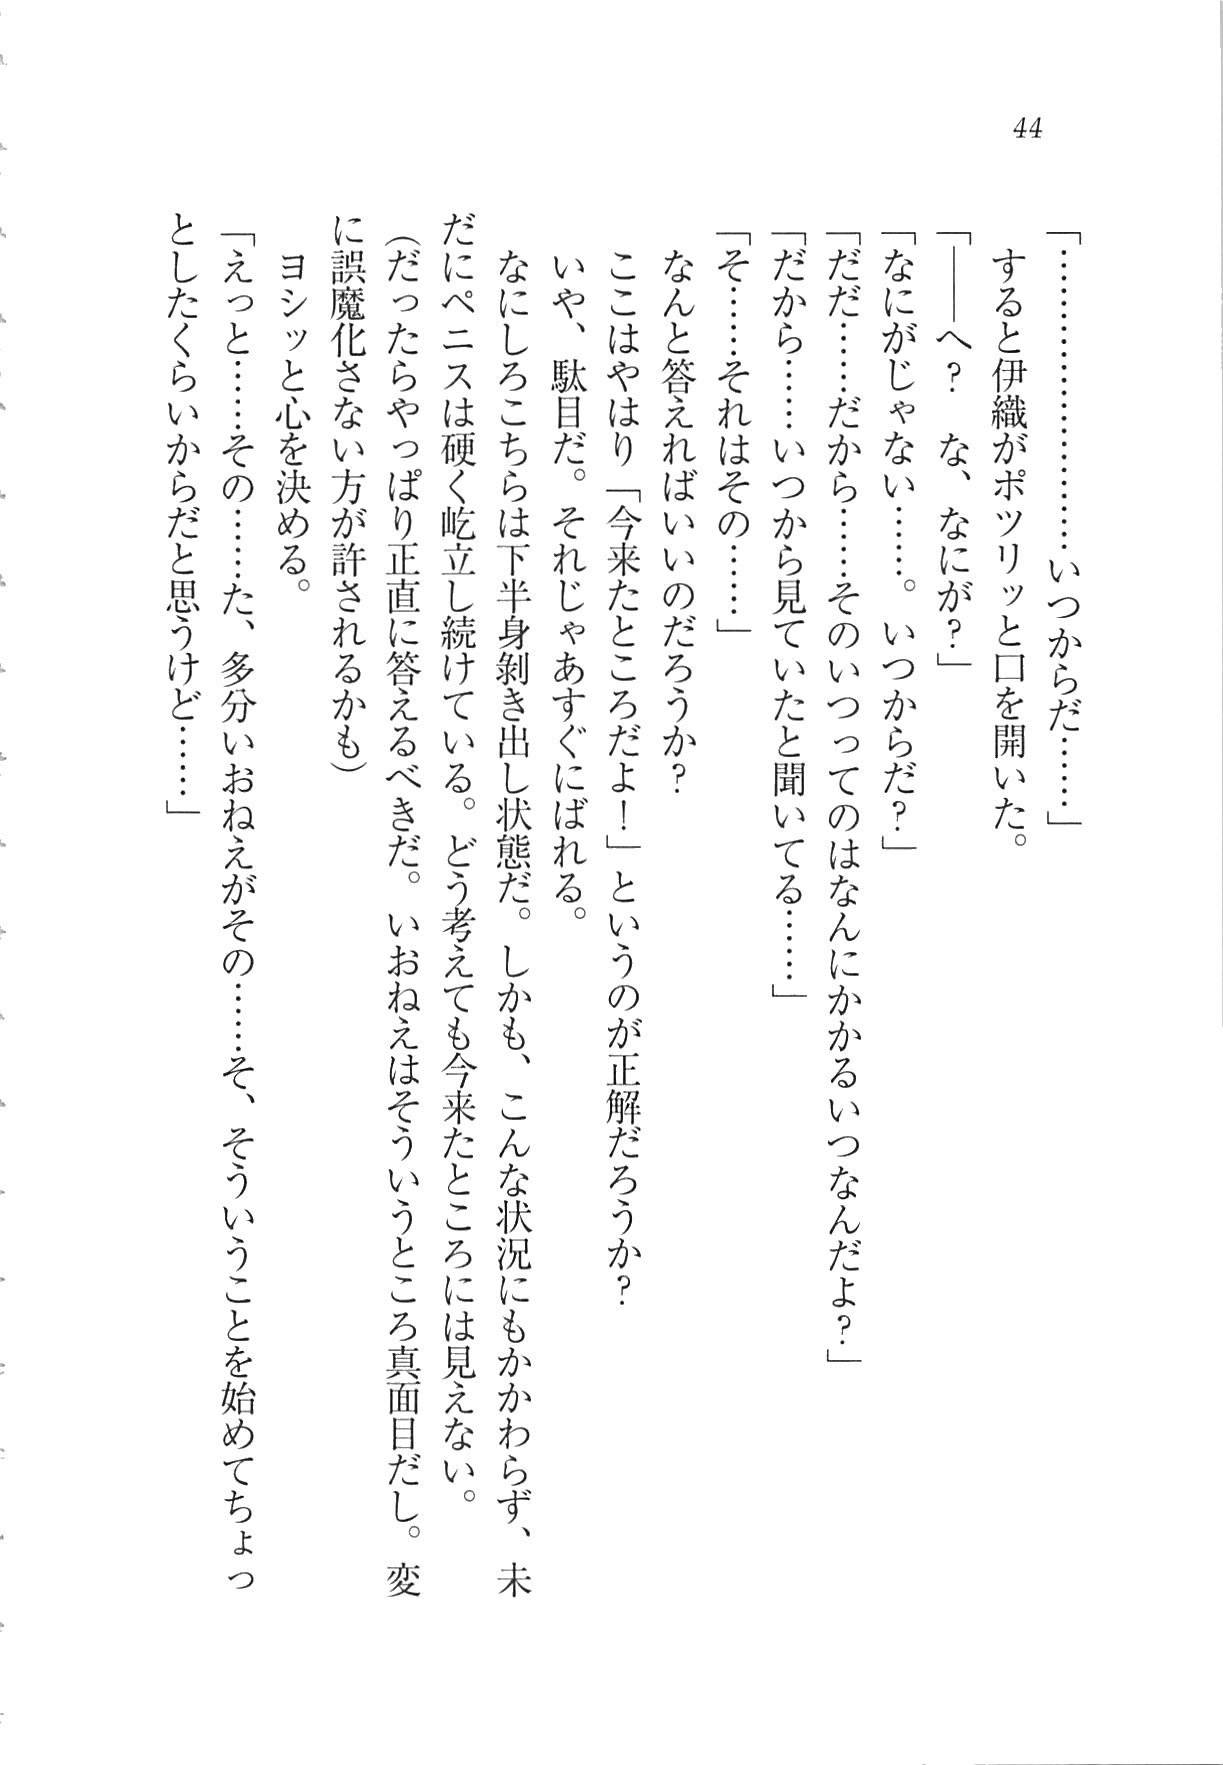 44
「……………………いつからだ……」
　すると伊織がポツリッと口を開いた。
「――へ？　な、なにが？」
「なにがじゃない……。いつからだ？」
「だだ……だから……そのいつってのはなんにかかるいつなんだよ？」
「だから……いつから見ていたと聞いてる……」
「そ……それはその……」
　なんと答えればいいのだろうか？
　ここはやはり「今来たところだよ！」というのが正解だろうか？
　いや、駄目だ。それじゃあすぐにばれる。
　なにしろこちらは下半身剝き出し状態だ。しかも、こんな状況にもかかわらず、未
だにペニスは硬く屹立し続けている。どう考えても今来たところには見えない。
（だったらやっぱり正直に答えるべきだ。いおねえはそういうところ真面目だし。変
に誤魔化さない方が許されるかも）
　ヨシッと心を決める。
「えっと……その……た、多分いおねえがその……そ、そういうことを始めてちょっ
としたくらいからだと思うけど……」